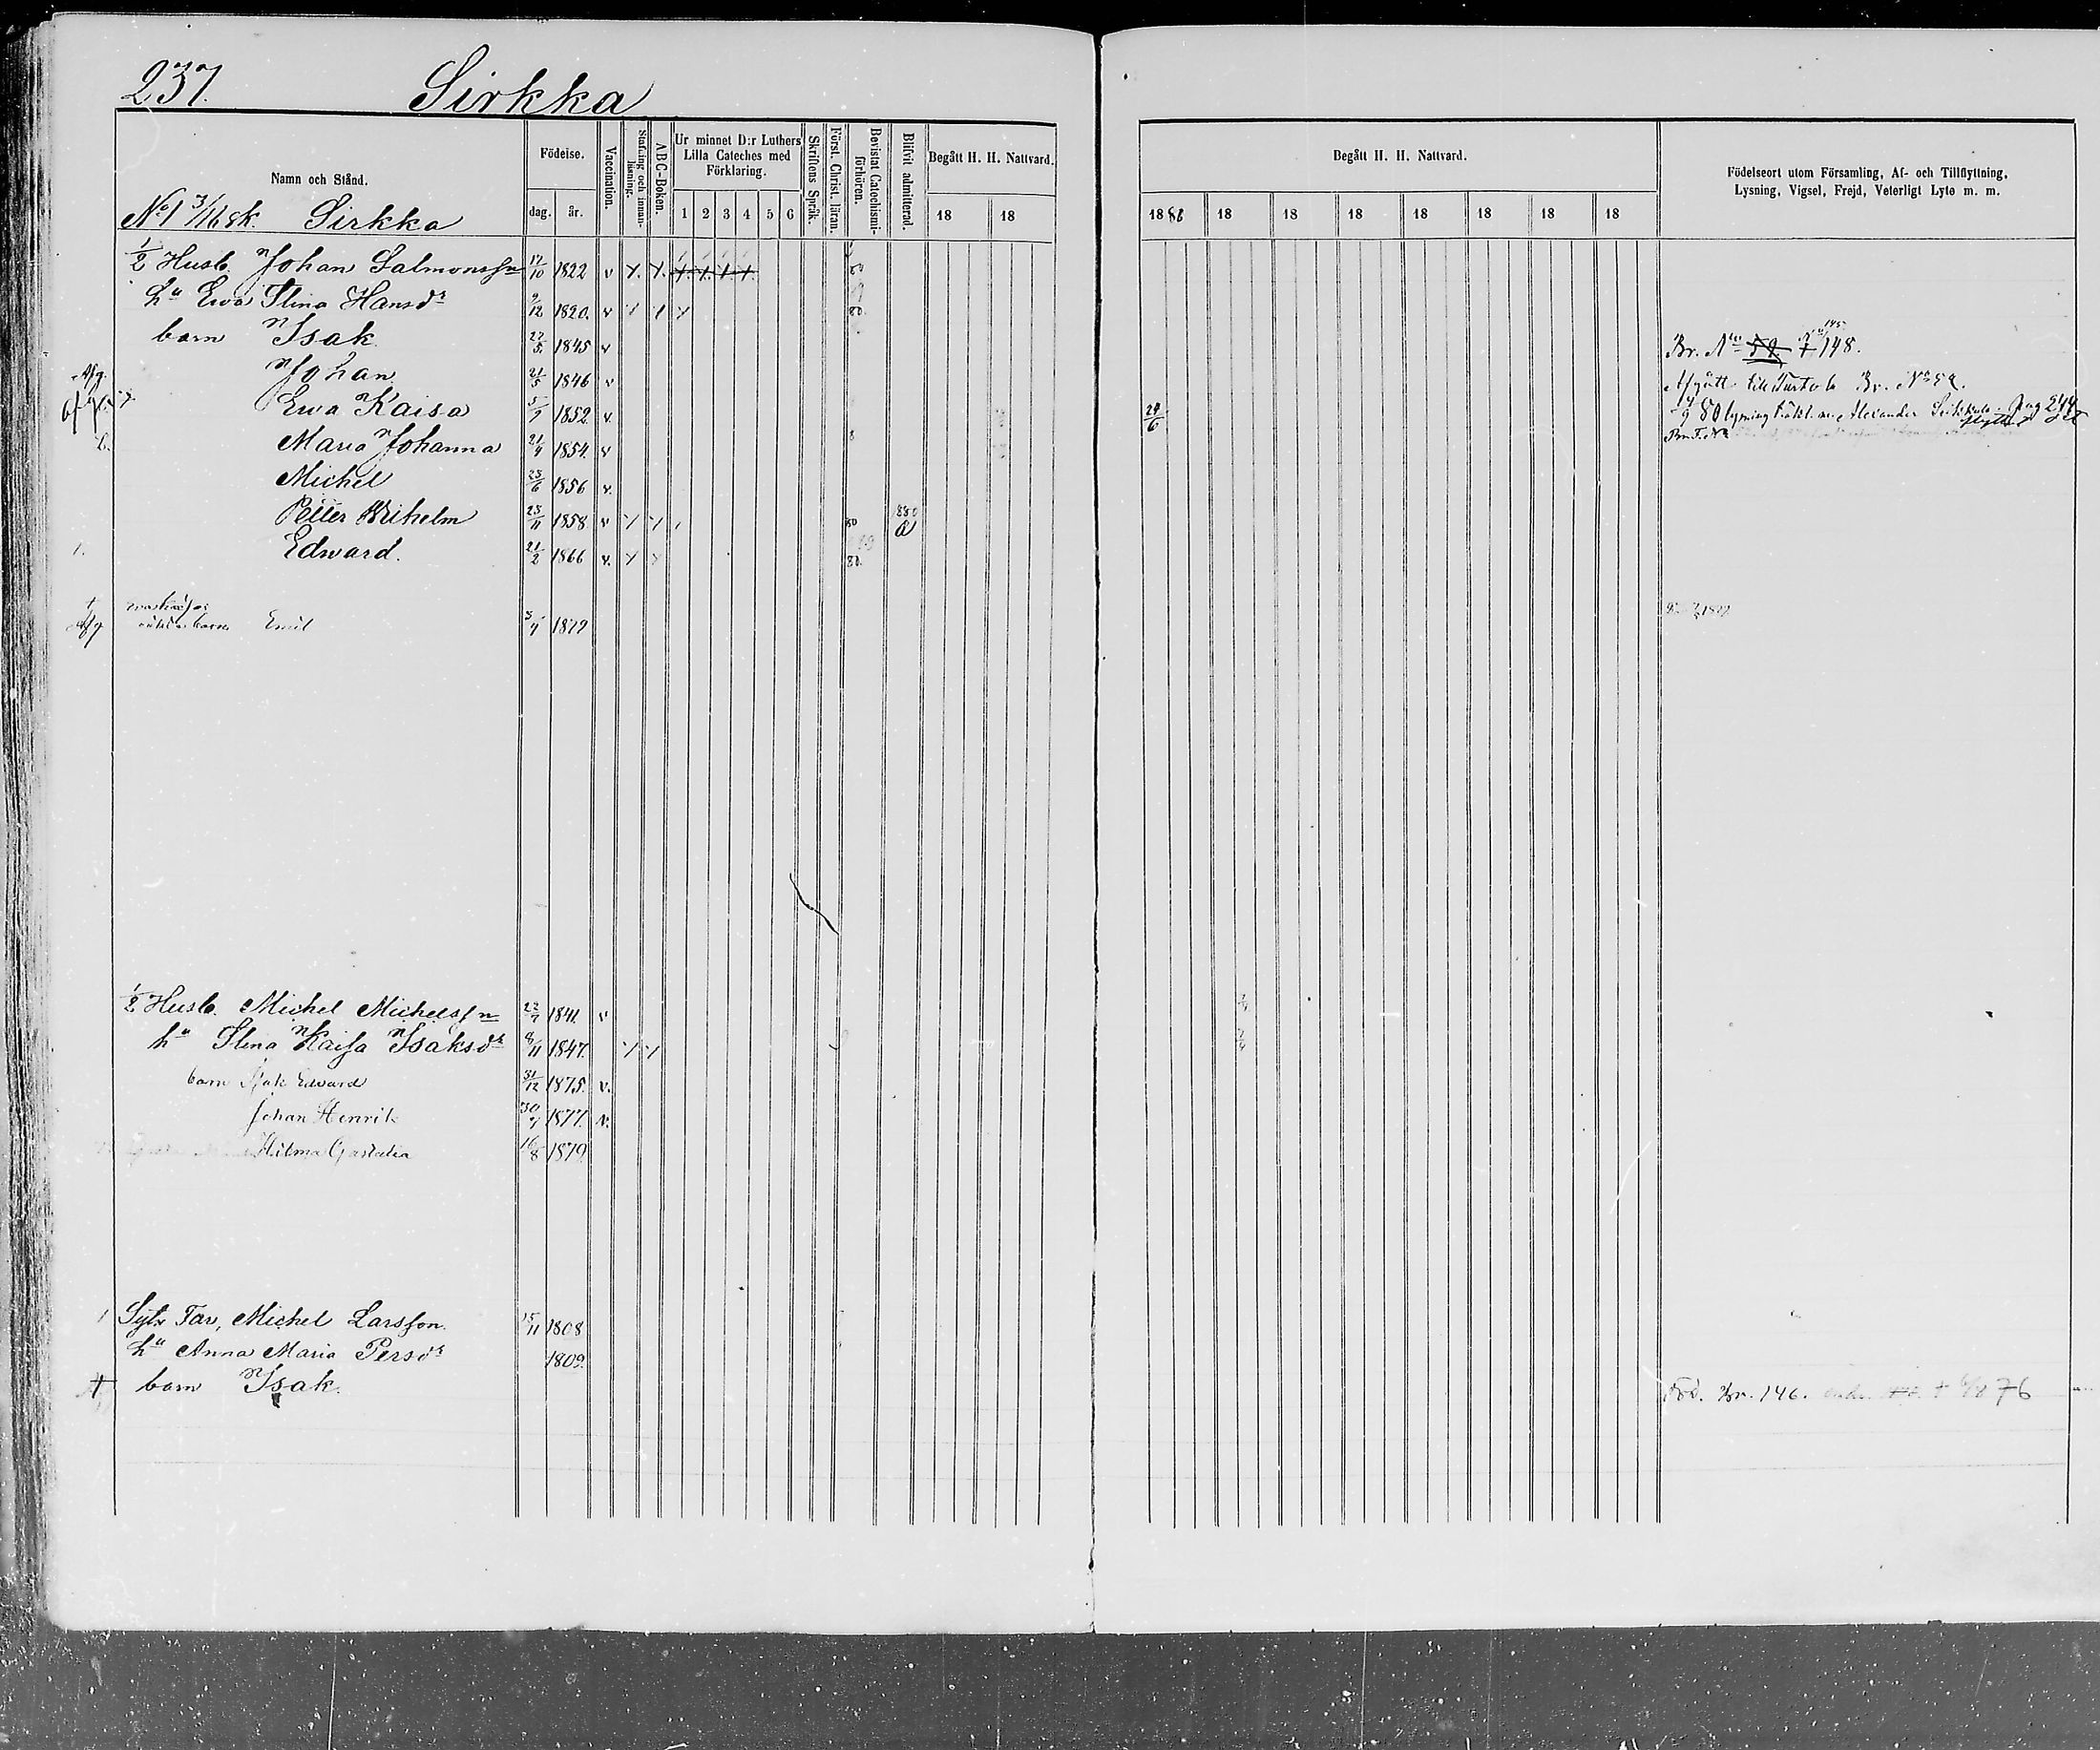 237. Sirkka
Namn och Stånd.
Födelse.
dag. år.
Vaccination.
Stafning och innan-läsning.
ABC-Boken.
Ur minnet D:r Luthers
Lilla Cateches med
Förklaring.
1 2 3 4 5 6
Skriftens Språk.
Först. Christ. läran.
Bevistat Catechismi-förhören.
Blifvit admitterad.
Begått H. H. Nattvard.
18 18
Begått H. H. Nattvard.
18 18 18 18 18 18 18 18
Födelseort utom Församling, Af- och Tillflyttning,
Lysning, Vigsel, Frejd, Veterligt Lyte m. m.
No 1 3/16 sk. Sirkka
1/2 Husb. Johan Salmonsson 17/10 1822 v
hu Ewa Stina Hansdr 9/12 1820. v 80.
barn Isak 27/5. 1845 v Br. No 148.
Afg. Johan 21/5 1846 v Afgått till Br. No 52.
Ewa Kaisa 5/7 1852. v. 24/6 80 lysning Alexander pag 244
Maria Johanna 21/4 1854. v
Michel 23/6 1856 v.
Petter Wilhelm 23/11 1858 v 80 880
Edward. 21/2 1866 v. 80.
Afg barn Emil 5/4 1879
1/2 Husb. Michel Michelsson 22/7 1841. v
hu Stina Kaisa Isaksdr 8/11 1847.
barn Isak Edward 31/12 1875. v.
Johan Henrik 30/7 1877. v.
Hilma 16/8 1879
Sytn Far, Michel Larsson. 15/11 1808
hu Anna Maria Persdr 1809.
† barn Isak. Föd. Br. 146. † 76